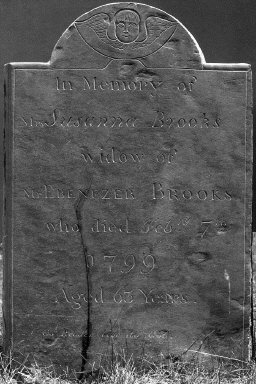 In Memory of
Mrs Susanna Brooks
widow of
Mr EBENEZER BROOKS
who died Feby 7th
1799
Aged 63 Years.